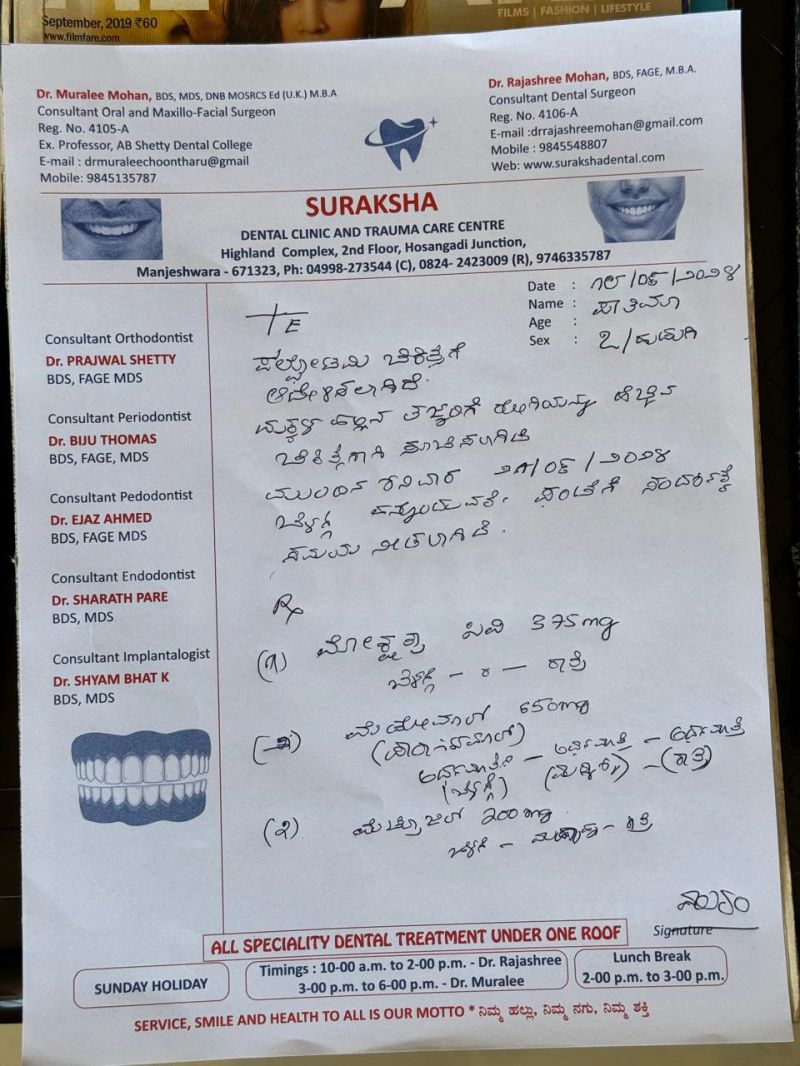 September, 2019 ₹60
www.filmfare.com
FILMS | FASHION | LIFESTYLE
Dr. Muralee Mohan, BDS, MDS, DNB MOSRCS Ed (U.K.) M.B.A
Consultant Oral and Maxillo-Facial Surgeon
Reg. No. 4105-A
Ex. Professor, AB Shetty Dental College
E-mail : drmuraleechoontharu@gmail
Mobile: 9845135787
Dr. Rajashree Mohan, BDS, FAGE, M.B.A.
Consultant Dental Surgeon
Reg. No. 4106-A
E-mail :drrajashreemohan@gmail.com
Mobile : 9845548807
Web: www.surakshadental.com
SURAKSHA
DENTAL CLINIC AND TRAUMA CARE CENTRE
Highland Complex, 2nd Floor, Hosangadi Junction,
Manjeshwara - 671323, Ph: 04998-273544 (C), 0824- 2423009 (R), 9746335787
Date :
Name : ಫಾತಿಮಾ
Age :
Sex : ೭/ಹುಡುಗಿ
Consultant Orthodontist
Dr. PRAJWAL SHETTY
BDS, FAGE MDS
Consultant Periodontist
Dr. BIJU THOMAS
BDS, FAGE, MDS
Consultant Pedodontist
Dr. EJAZ AHMED
BDS, FAGE MDS
Consultant Endodontist
Dr. SHARATH PARE
BDS, MDS
Consultant Implantalogist
Dr. SHYAM BHAT K
BDS, MDS
ಪಲ್ಪೋಟಮಿ ಚಿಕಿತ್ಸೆಗೆ
ಮಕ್ಕಳ ಹಲ್ಲಿನ ತಜ್ಞರಿಗೆ ರೋಗಿಯನ್ನು ಹೆಚ್ಚಿನ
ಚಿಕಿತ್ಸೆಗಾಗಿ ಸೂಚಿಸಲಾಗಿದೆ
ಮುಂದಿನ ಶನಿವಾರ
ಬೆಳಗ್ಗೆ ಹನ್ನೊಂದುವರೇ ಘಂಟೆಗೆ ಸಂದರ್ಶನಕ್ಕೆ
ಸಮಯ ನೀಡಲಾಗಿದೆ.
Rx
(೧) ಸಿವಿ 375mg
ಬೆಳಗ್ಗೆ - ೦ - ರಾತ್ರೆ
650mg
(ಪಾರಾಸಿಟಮಾಲ್)
ಅರ್ಧಮಾತ್ರೆ - ಅರ್ಧಮಾತ್ರೆ - ಅರ್ಧಮಾತ್ರೆ
(ಬೆಳಗ್ಗೆ) (ಮಧ್ಯಾಹ್ನ) - (ರಾತ್ರೆ)
ಮೆಟ್ರೊಜಿಲ್ 200mg
ಬೆಳಗೆ - ಮಧ್ಯಾಹ್ನ - ರಾತ್ರೆ
Signature
ALL SPECIALITY DENTAL TREATMENT UNDER ONE ROOF
SUNDAY HOLIDAY
Timings : 10-00 a.m. to 2-00 p.m. - Dr. Rajashree
3-00 p.m. to 6-00 p.m. - Dr. Muralee
Lunch Break
2-00 p.m. to 3-00 p.m.
SERVICE, SMILE AND HEALTH TO ALL IS OUR MOTTO * ನಿಮ್ಮ ಹಲ್ಲು, ನಿಮ್ಮ ನಗು, ನಿಮ್ಮ ಶಕ್ತಿ